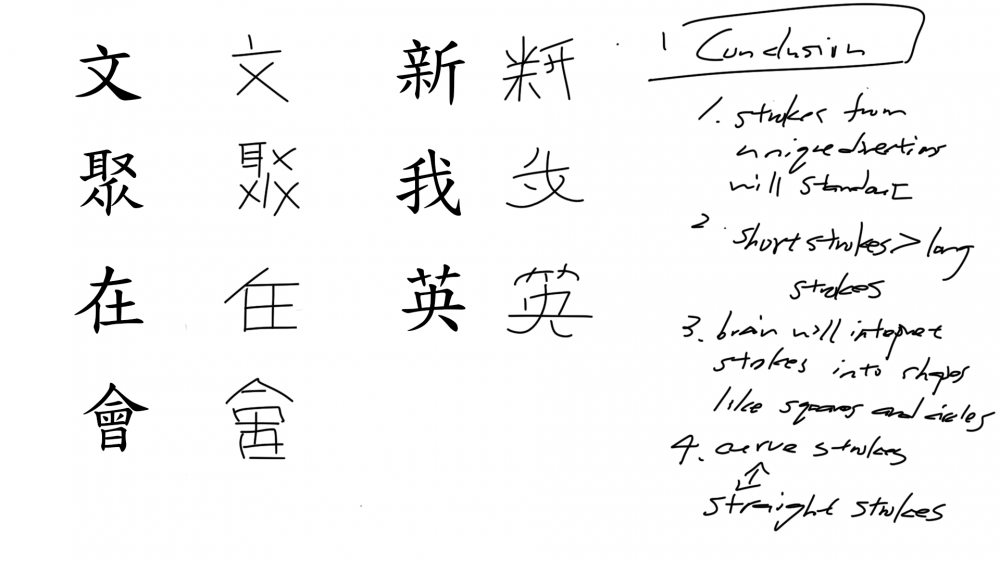 文 文 新
聚 我
在 英
會
Conclusion
1. strokes from
unique directions
will standout
2. short strokes > long
strokes
3. brain will interpret
strokes into shapes
like squares and circles
4. curve strokes
straight strokes